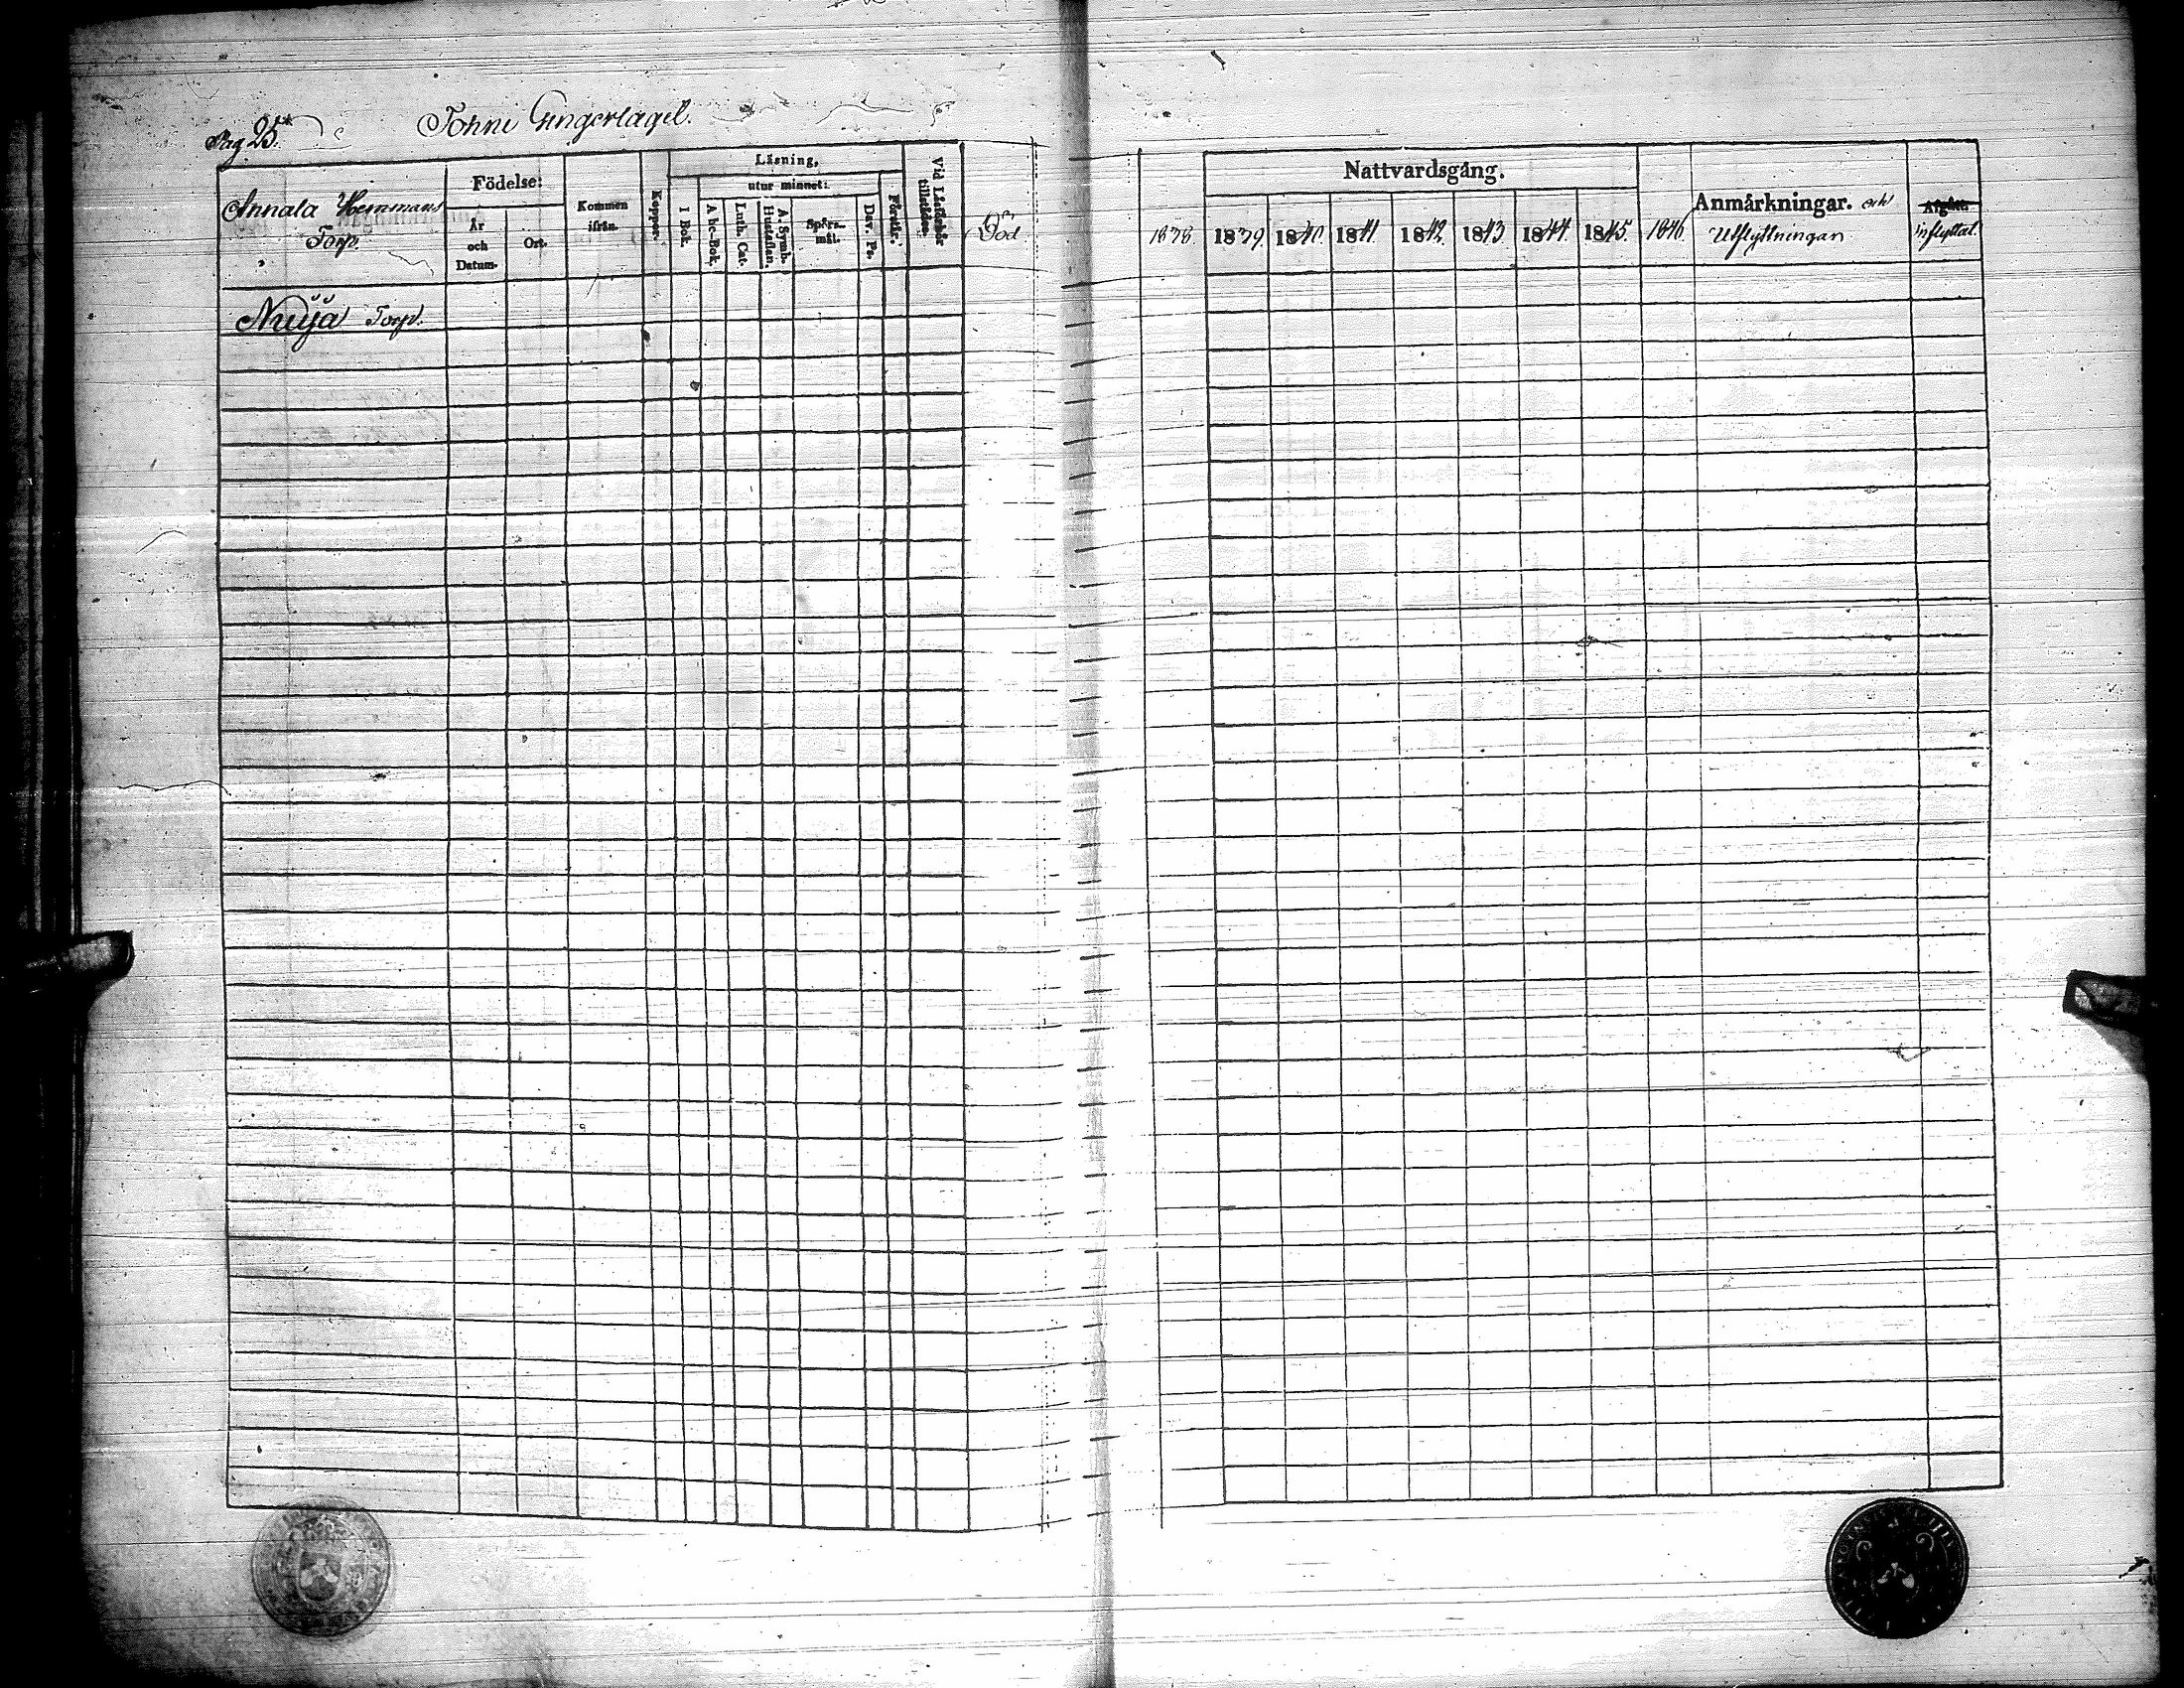 Pag 25.
Tohni Gingerlägel.
Annala Hemmans
Torp.
Födelse:
År
och
Datum.
Ort.
Kommen
ifrån.
Koppor.
Läsning,
utur minnet:
I Bok.
A bc-Bok.
Luth. Cat.
A. Symb.
Hustaflan.
Spörs-
mål.
Dav. Ps.
Förstår.
Vid Läseförhör
tillstädes.
Död
Nuija Torp.
Nattvardsgång.
1838.
1839.
1840.
1841.
1842.
1843.
1844.
1845.
1846.
Anmärkningar. och
Utflyttningar
Afgått.
inflyttat.